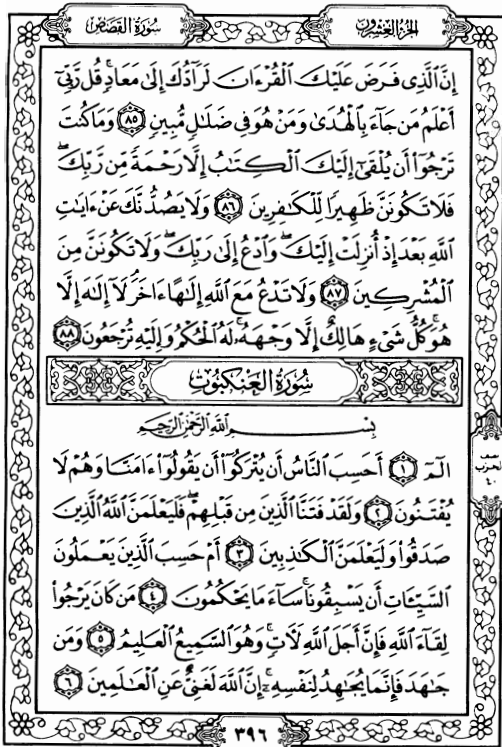 الجزء العشرون
سورة القصص
إِنَّ ٱلَّذِى فَرَضَ عَلَيْكَ ٱلْقُرْءَانَ لَرَآدُّكَ إِلَىٰ مَعَادٍ ۚ قُل رَّبِّىٓ
أَعْلَمُ مَن جَآءَ بِٱلْهُدَىٰ وَمَنْ هُوَ فِى ضَلَٰلٍ مُّبِينٍ ٨٥ وَمَا كُنتَ
تَرْجُوٓا۟ أَن يُلْقَىٰٓ إِلَيْكَ ٱلْكِتَٰبُ إِلَّا رَحْمَةً مِّن رَّبِّكَ ۖ
فَلَا تَكُونَنَّ ظَهِيرًا لِّلْكَٰفِرِينَ ٨٦ وَلَا يَصُدُّنَّكَ عَنْ ءَايَٰتِ
ٱللَّهِ بَعْدَ إِذْ أُنزِلَتْ إِلَيْكَ ۖ وَٱدْعُ إِلَىٰ رَبِّكَ ۖ وَلَا تَكُونَنَّ مِنَ
ٱلْمُشْرِكِينَ ٨٧ وَلَا تَدْعُ مَعَ ٱللَّهِ إِلَٰهًا ءَاخَرَ ۘ لَآ إِلَٰهَ إِلَّا
هُوَ ۚ كُلُّ شَىْءٍ هَالِكٌ إِلَّا وَجْهَهُۥ ۚ لَهُ ٱلْحُكْمُ وَإِلَيْهِ تُرْجَعُونَ ٨٨
سُورَةُ العَنكبُوتِ
بِسْمِ ٱللَّهِ ٱلرَّحْمَٰنِ ٱلرَّحِيمِ
الٓمٓ ١ أَحَسِبَ ٱلنَّاسُ أَن يُتْرَكُوٓا۟ أَن يَقُولُوٓا۟ ءَامَنَّا وَهُمْ لَا
يُفْتَنُونَ ٢ وَلَقَدْ فَتَنَّا ٱلَّذِينَ مِن قَبْلِهِمْ ۖ فَلَيَعْلَمَنَّ ٱللَّهُ ٱلَّذِينَ
صَدَقُوا۟ وَلَيَعْلَمَنَّ ٱلْكَٰذِبِينَ ٣ أَمْ حَسِبَ ٱلَّذِينَ يَعْمَلُونَ
ٱلسَّيِّـَٔاتِ أَن يَسْبِقُونَا ۚ سَآءَ مَا يَحْكُمُونَ ٤ مَن كَانَ يَرْجُوا۟
لِقَآءَ ٱللَّهِ فَإِنَّ أَجَلَ ٱللَّهِ لَءَاتٍ ۚ وَهُوَ ٱلسَّمِيعُ ٱلْعَلِيمُ ٥ وَمَن
جَٰهَدَ فَإِنَّمَا يُجَٰهِدُ لِنَفْسِهِۦٓ ۚ إِنَّ ٱللَّهَ لَغَنِىٌّ عَنِ ٱلْعَٰلَمِينَ ٦
نصف
الحزب
٤٠
٣٩٦